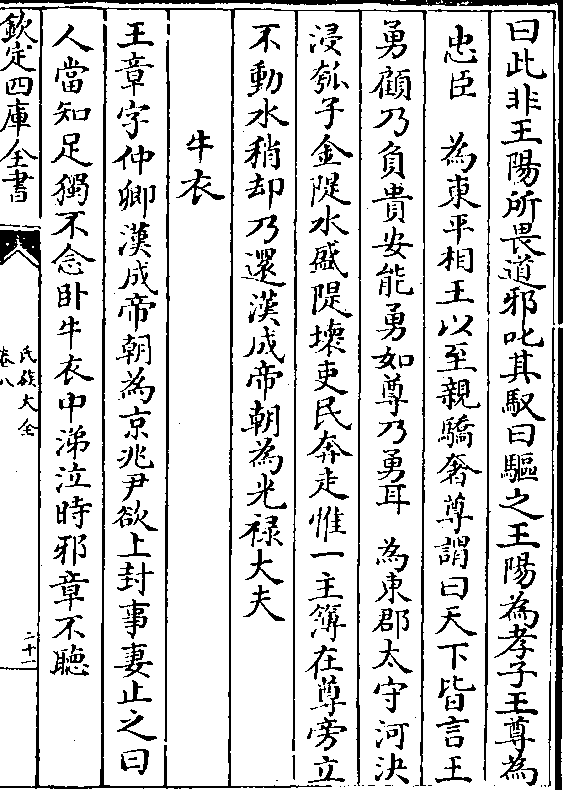 曰此非王陽所畏道邪叱其馭曰驅之王陽為孝子王尊為
忠臣　為東平相王以至親驕奢尊謂曰天下皆言王
勇顧乃負貴安能勇如尊乃勇耳　為東郡太守河決
浸瓠子金隄水盛隄壞吏民奔走惟一主簿在尊旁立
不動水稍却乃還漢成帝朝為光禄大夫
牛衣
王章字仲卿漢成帝朝為京兆尹欲上封事妻止之曰
人當知足獨不念卧牛衣中涕泣時邪章不聽
欽定四庫全書
氏族大全
卷八
二十一